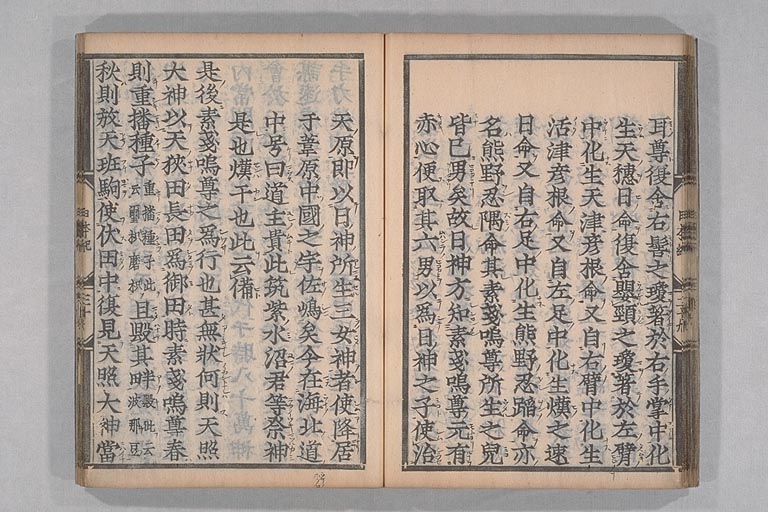 耳尊復含右髻之瓊著於右手掌中化
生天穗日命復含嬰頸之瓊著於左臂
中化生天津彦根命又自右臂中化生
活津彦根命又自左足中化生熯之速
日命又自右足中化生熊野忍蹈命亦
名熊野忍隅命其素戔嗚尊所生之兒
皆已男矣故日神方知素戔嗚尊元有
赤心便取其六男以爲日神之子使治
天原即以日神所生三女神者使降居
于葦原中國之宇佐嶋矣今在海北道
中号曰道主貴此筑紫水沼君等祭神
是也熯干也此云備
是後素戔嗚尊之爲行也甚無狀何則天照
大神以天狹田長田爲御田時素戔嗚尊春
則重播種子重播種子此云璽枳磨枳且毀其畔毀此云波那豆
秋則放天斑駒使伏田中復見天照大神當